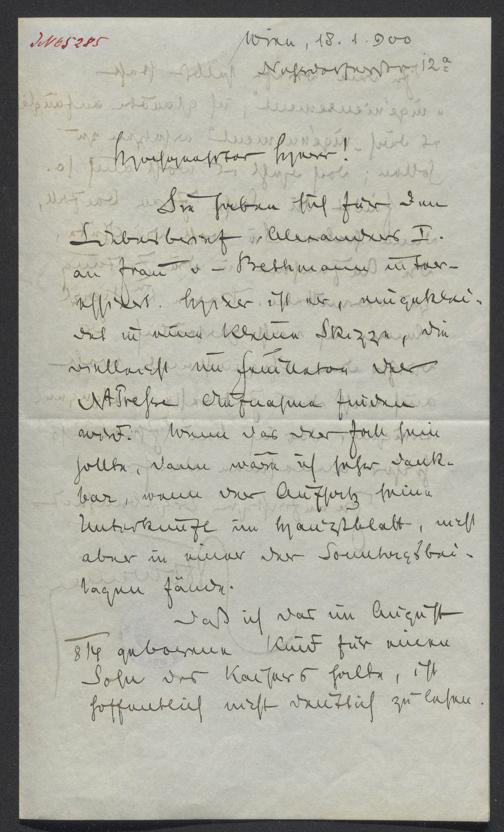 JN 65285
Wien, 18. 1. 900
Nussdorferstr 12a
Hochgeehrter Herr!
Sie haben sich für den
Liebesbrief Alexanders I.
an Frau v. Bethmann inter-
essiert. Hier ist er, eingeklei-
det in eine kleine Skizze, die
vielleicht im Feuilleton der
N Presse Aufnahme finden
wird. Wenn das der Fall sein
sollte, dann wäre ich sehr dank-
bar, wenn der Aufsatz seine
Unterkunft im Hauptblatt, nicht
aber in einer der Sonntagsbei-
lagen fände.
Daß ich das im August
814 geborene Kind für einen
Sohn des Kaisers halte, ist
hoffentlich nicht deutlich zu lesen.